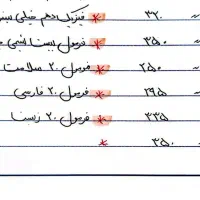 * فیزیک دهم خیلی سبز ۳۲۰
* فرمول بیست شیمی ۳۵۰
* فرمول ۲۰ سلامت ۲۵۰
* فرمول ۲۰ فارسی ۲۹۵
فرمول ۲۰ زیست ۳۳۵
* ۳۵۰